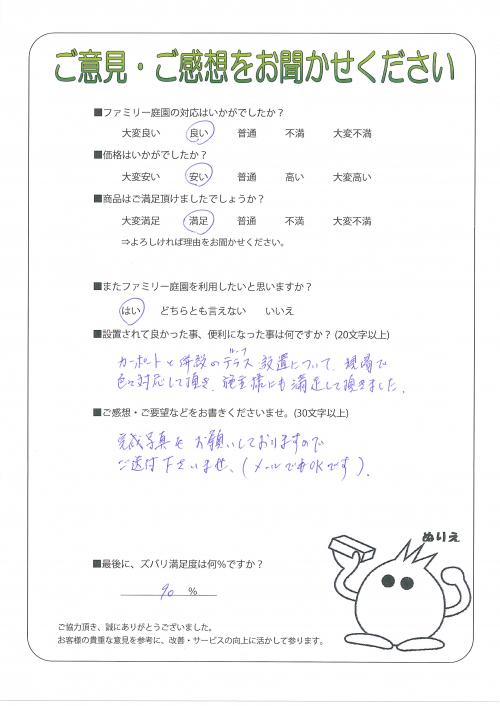 ご意見・ご感想をお聞かせください
■ファミリー庭園の対応はいかがでしたか？
大変良い 良い 普通 不満 大変不満
■価格はいかがでしたか？
大変安い 安い 普通 高い 大変高い
■商品はご満足頂けましたでしょうか？
大変満足 満足 普通 不満 大変不満
⇒よろしければ理由をお聞かせください。
■またファミリー庭園を利用したいと思いますか？
はい どちらとも言えない いいえ
■設置されて良かった事、便利になった事は何ですか？(20文字以上)
カーポートと併設のテラス設置について、現場で
色々対応して頂き、施主様にも満足して頂きました。
■ご感想・ご要望などをお書きくださいませ。(30文字以上)
完成写真をお願いしておりますので
ご送付下さいませ、(メールでもOKです)。
ぬりえ
■最後に、ズバリ満足度は何％ですか？
90 %
ご協力頂き、誠にありがとうございました。
お客様の貴重な意見を参考に、改善・サービスの向上に活かして参ります。